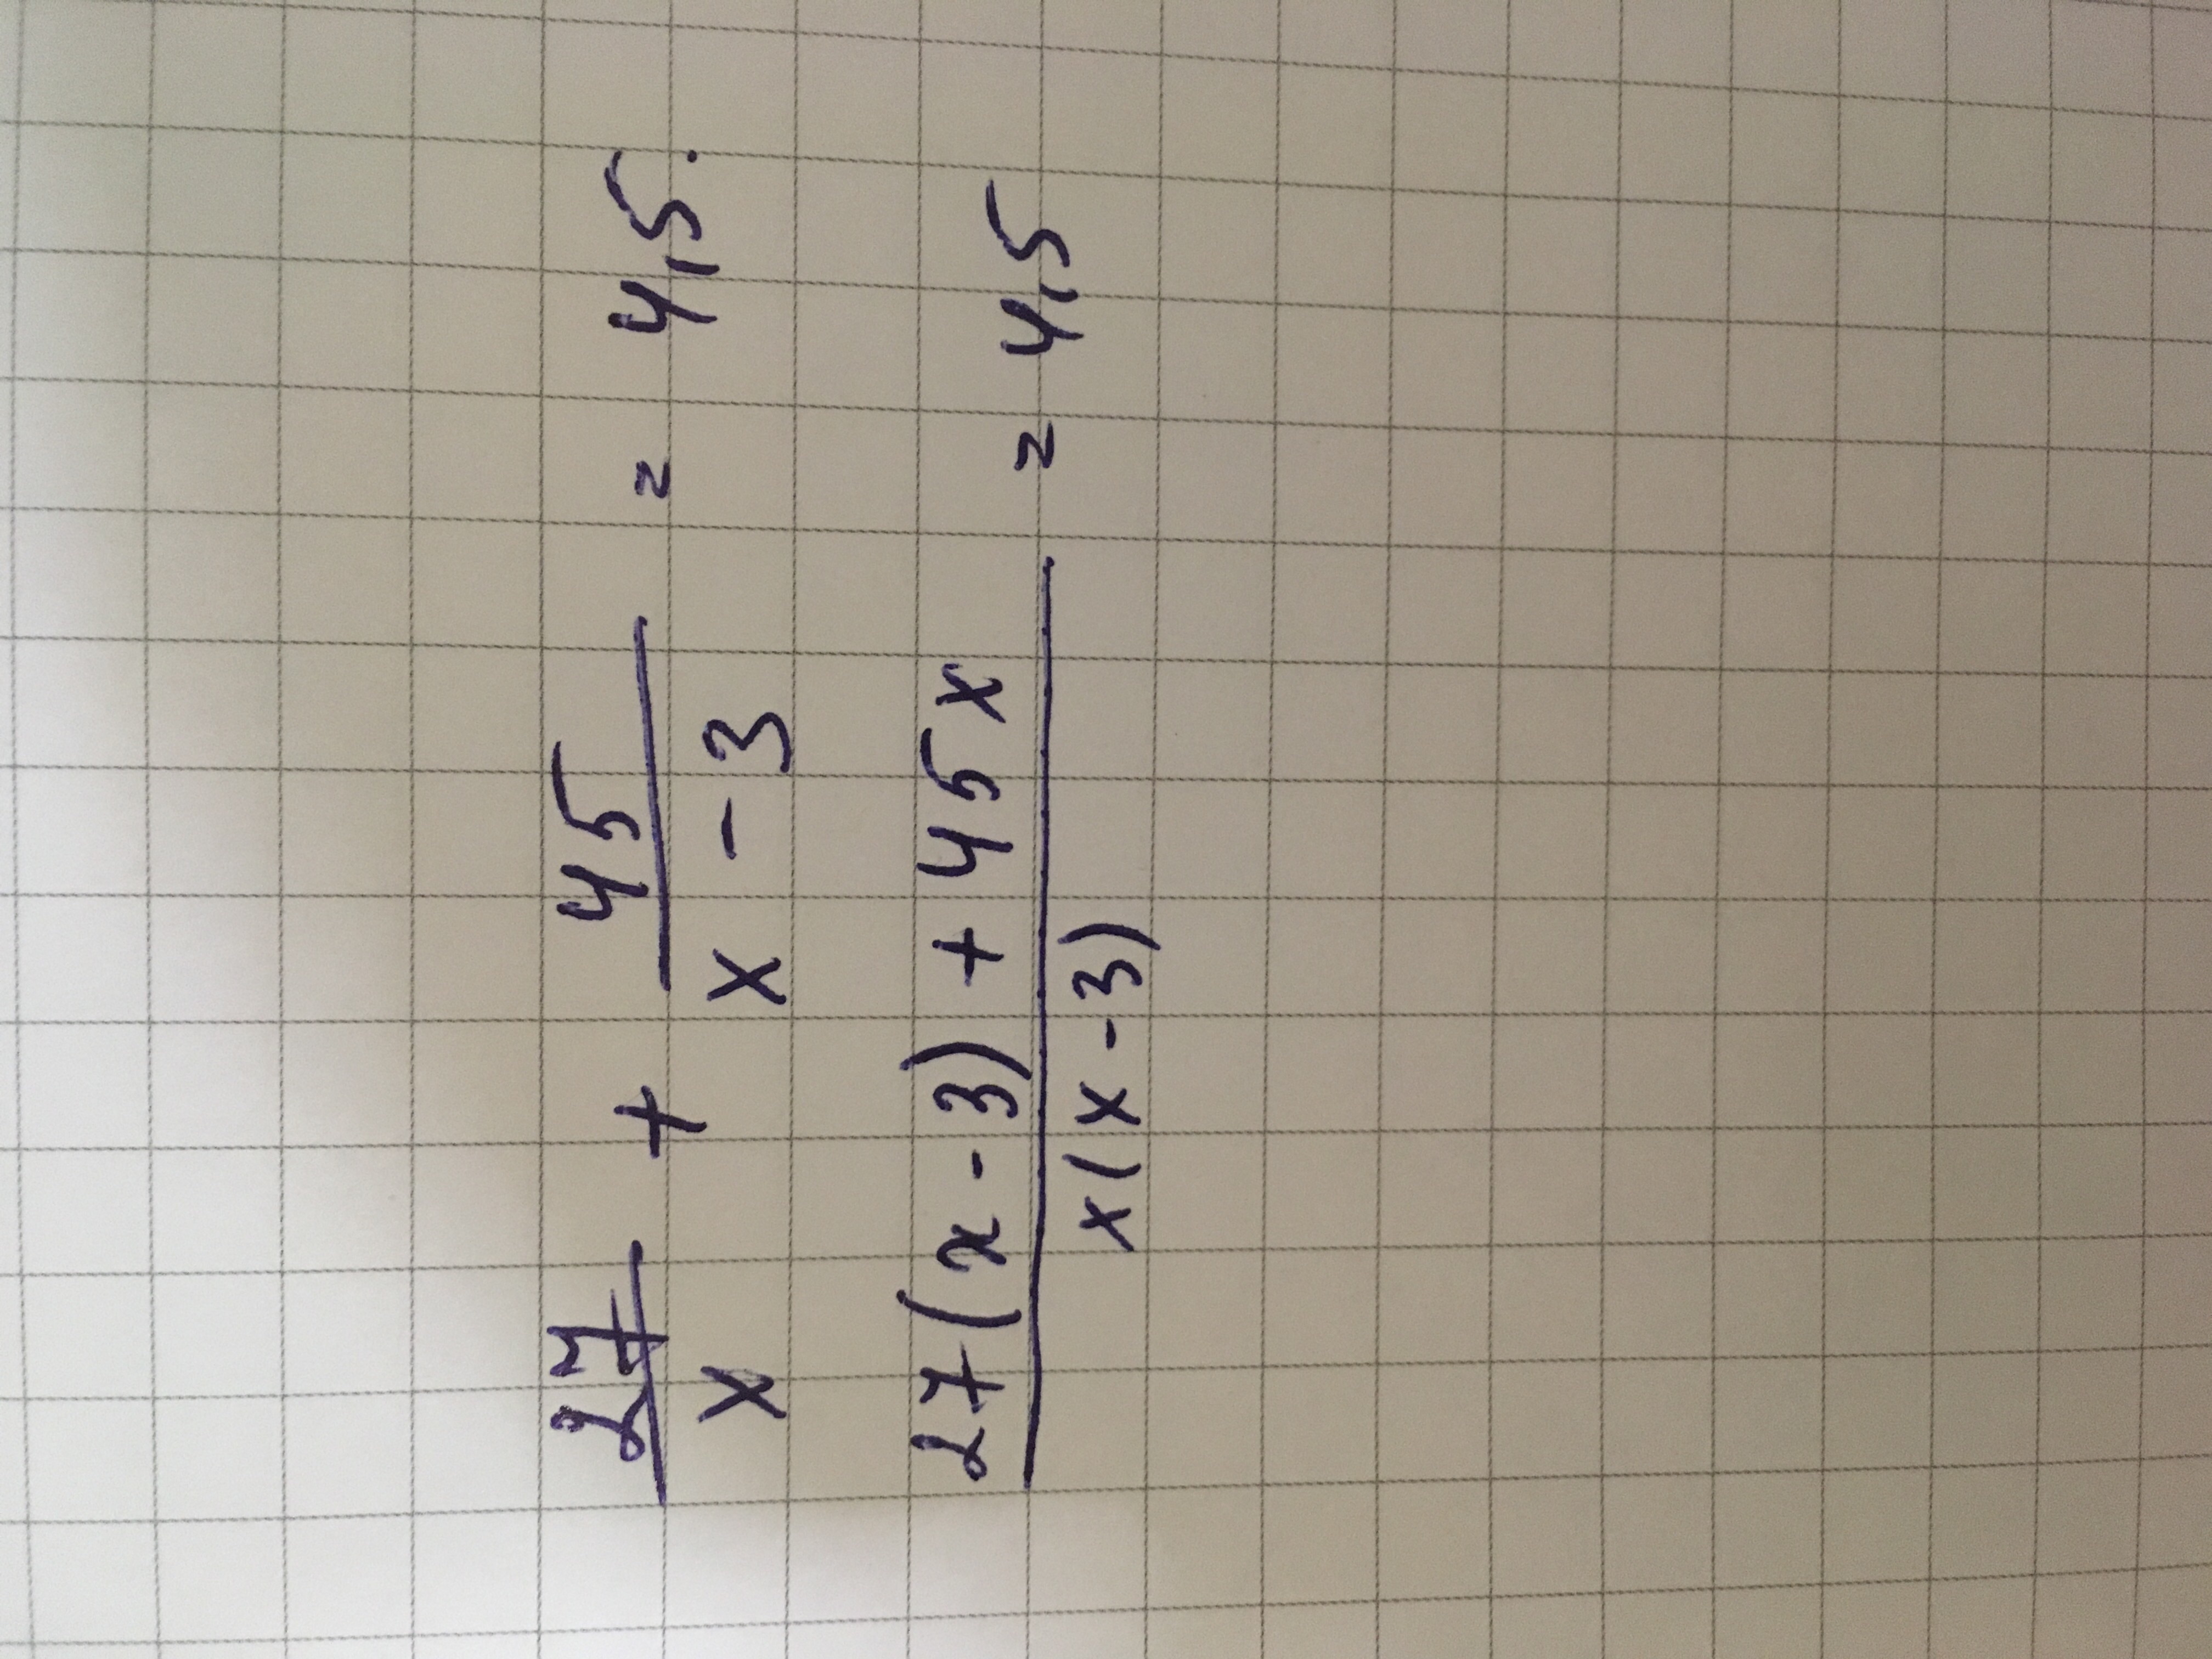 27/x + 45/(x - 3) = 4,5.
(27(x - 3) + 45x)/(x(x - 3)) = 4,5